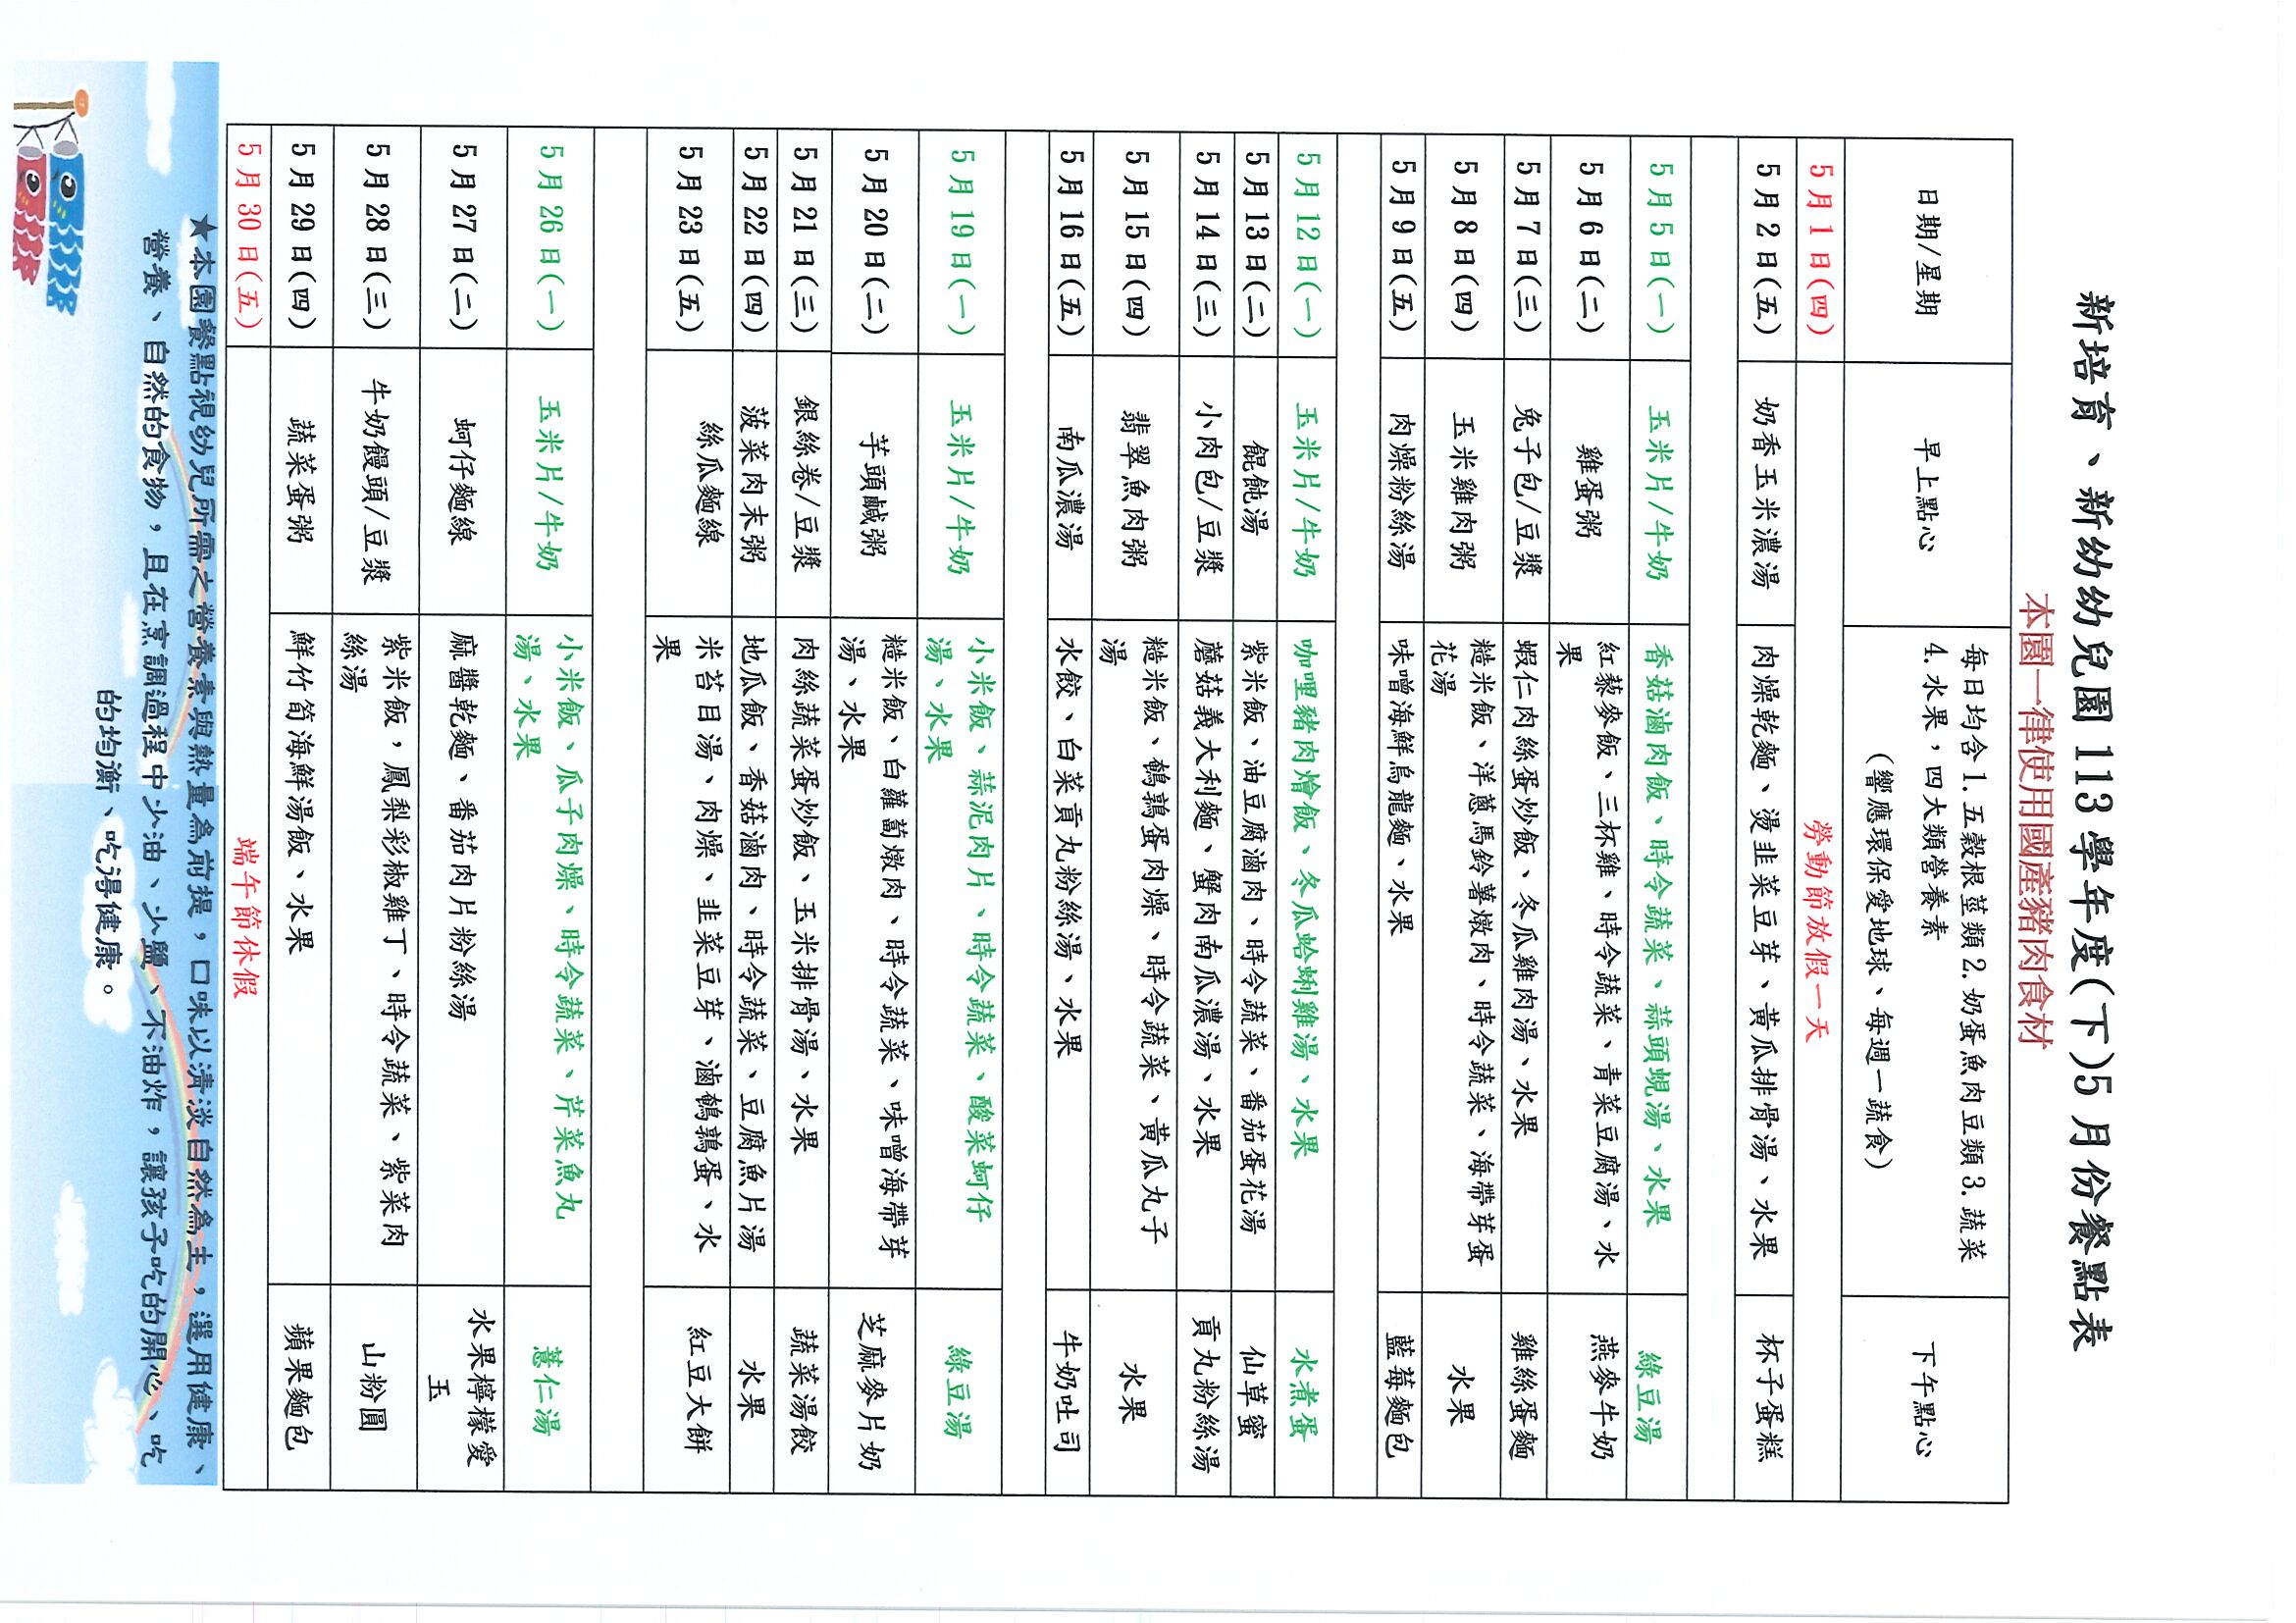 新培育、新幼幼兒園 113 學年度(下)5 月份餐點表
本園一律使用國產豬肉食材
日期/星期 早上點心 每日均含 1.五穀根莖類 2.奶蛋魚肉豆類 3.蔬菜
4.水果，四大類營養素
(響應環保愛地球、每週一蔬食) 下午點心
5 月 1 日(四) 勞動節放假一天
5 月 2 日(五) 奶香玉米濃湯 肉燥乾麵、燙韭菜豆芽、黃瓜排骨湯、水果 杯子蛋糕
5 月 5 日(一) 玉米片/牛奶 香菇滷肉飯、時令蔬菜、蒜頭蜆湯、水果 綠豆湯
5 月 6 日(二) 雞蛋粥 紅藜麥飯、三杯雞、時令蔬菜、青菜豆腐湯、水
果 燕麥牛奶
5 月 7 日(三) 兔子包/豆漿 蝦仁肉絲蛋炒飯、冬瓜雞肉湯、水果 雞絲蛋麵
5 月 8 日(四) 玉米雞肉粥 糙米飯、洋蔥馬鈴薯燉肉、時令蔬菜、海帶芽蛋
花湯 水果
5 月 9 日(五) 肉燥粉絲湯 味噌海鮮烏龍麵、水果 藍莓麵包
5 月 12 日(一) 玉米片/牛奶 咖哩豬肉燴飯、冬瓜蛤蜊雞湯、水果 水煮蛋
5 月 13 日(二) 餛飩湯 紫米飯、油豆腐滷肉、時令蔬菜、番茄蛋花湯 仙草蜜
5 月 14 日(三) 小肉包/豆漿 蘑菇義大利麵、蟹肉南瓜濃湯、水果 貢丸粉絲湯
5 月 15 日(四) 翡翠魚肉粥 糙米飯、鵪鶉蛋肉燥、時令蔬菜、黃瓜丸子
湯 水果
5 月 16 日(五) 南瓜濃湯 水餃、白菜貢丸粉絲湯、水果 牛奶吐司
5 月 19 日(一) 玉米片/牛奶 小米飯、蒜泥肉片、時令蔬菜、酸菜蚵仔
湯、水果 綠豆湯
5 月 20 日(二) 芋頭鹹粥 糙米飯、白蘿蔔燉肉、時令蔬菜、味噌海帶芽
湯、水果 芝麻麥片奶
5 月 21 日(三) 銀絲卷/豆漿 肉絲蔬菜蛋炒飯、玉米排骨湯、水果 蔬菜湯餃
5 月 22 日(四) 菠菜肉末粥 地瓜飯、香菇滷肉、時令蔬菜、豆腐魚片湯 水果
5 月 23 日(五) 絲瓜麵線 米苔目湯、肉燥、韭菜豆芽、滷鵪鶉蛋、水
果 紅豆大餅
5 月 26 日(一) 玉米片/牛奶 小米飯、瓜子肉燥、時令蔬菜、芹菜魚丸
湯、水果 薏仁湯
5 月 27 日(二) 蚵仔麵線 麻醬乾麵、番茄肉片粉絲湯 水果檸檬愛
玉
5 月 28 日(三) 牛奶饅頭/豆漿 紫米飯，鳳梨彩椒雞丁、時令蔬菜、紫菜肉
絲湯 山粉圓
5 月 29 日(四) 蔬菜蛋粥 鮮竹筍海鮮湯飯、水果 蘋果麵包
5 月 30 日(五) 端午節休假
★本園餐點視幼兒所需之營養素與熱量為前提，口味以清淡自然為主，選用健康、
營養、自然的食物，且在烹調過程中少油、少鹽、不油炸，讓孩子吃的開心、吃
的均衡、吃得健康。